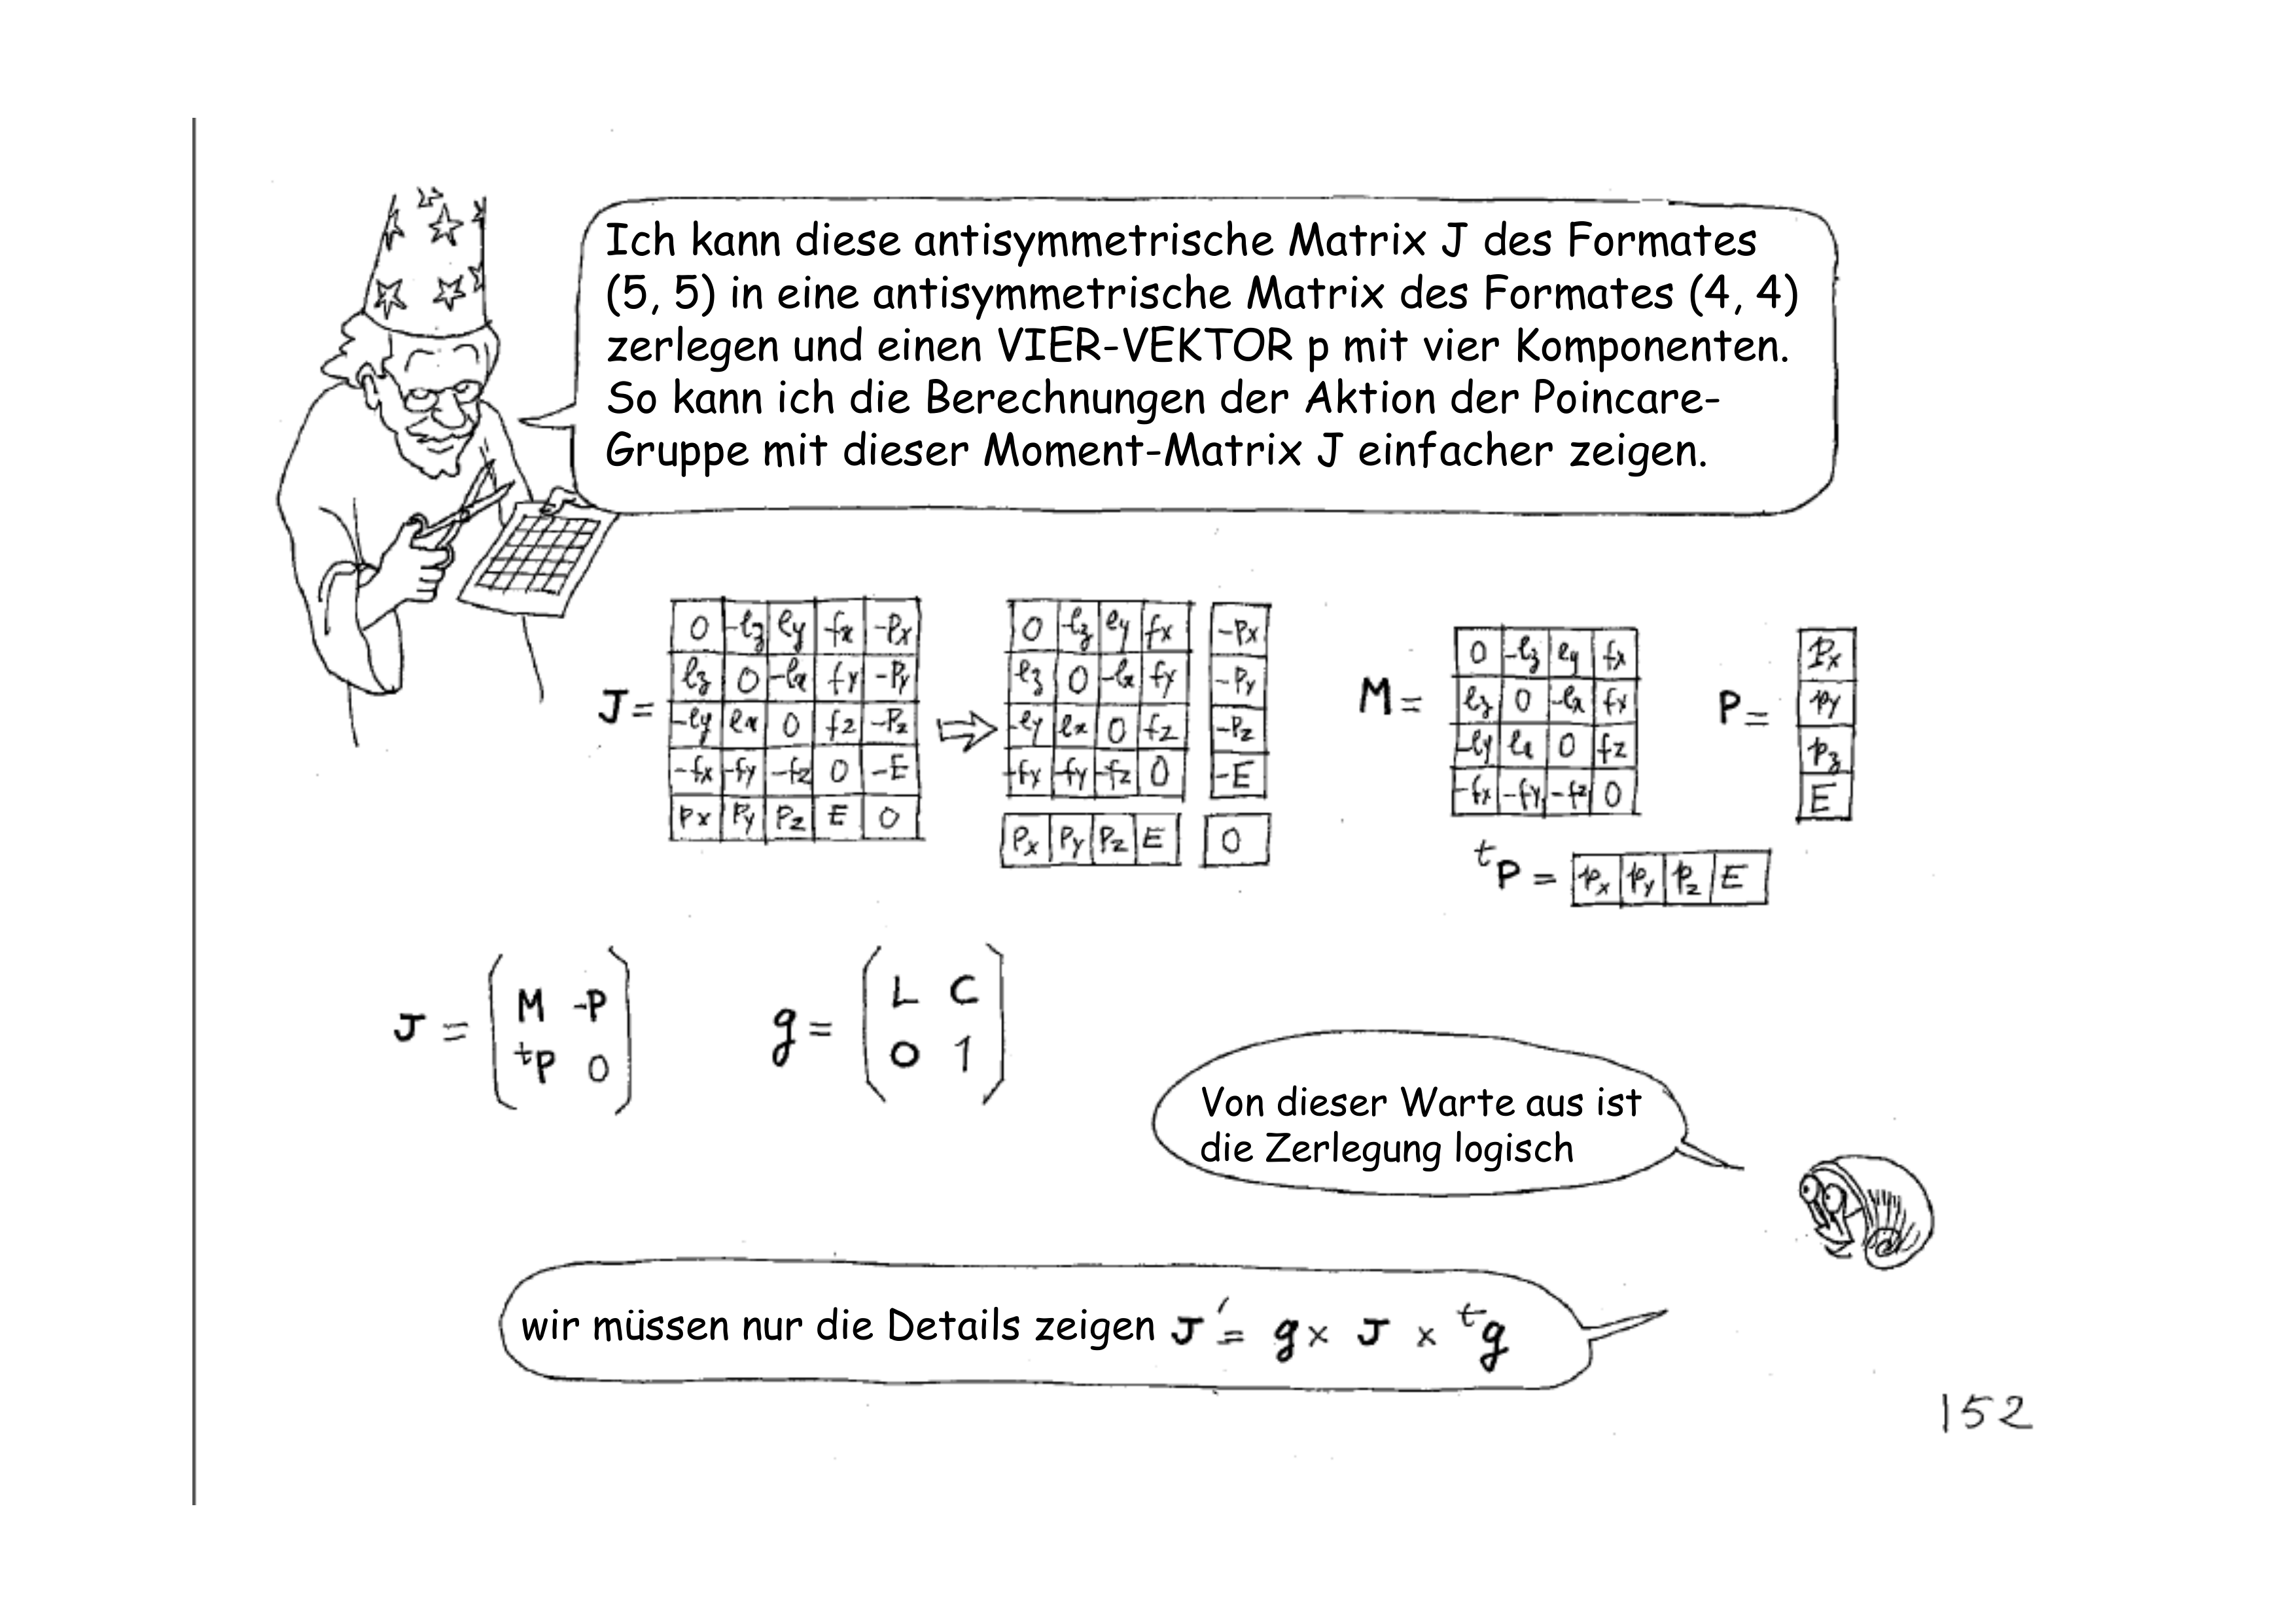 Ich kann diese antisymmetrische Matrix J des Formates
(5, 5) in eine antisymmetrische Matrix des Formates (4, 4)
zerlegen und einen VIER-VEKTOR p mit vier Komponenten.
So kann ich die Berechnungen der Aktion der Poincare-
Gruppe mit dieser Moment-Matrix J einfacher zeigen.
J =
0 -lz ly fx -Px
lz 0 -lx fy -Py
-ly lx 0 fz -Pz
-fx -fy -fz 0 -E
Px Py Pz E 0
⇒
0 -lz ly fx -Px
lz 0 -lx fy -Py
-ly lx 0 fz -Pz
-fx -fy -fz 0 -E
Px Py Pz E 0
M =
0 -lz ly fx
lz 0 -lx fx
-ly lx 0 fz
-fx -fy -fz 0
P =
Px
Py
Pz
E
tP = Px Py Pz E
J = ( M -P
tP 0 )
g = ( L C
0 1 )
Von dieser Warte aus ist
die Zerlegung logisch
wir müssen nur die Details zeigen J' = g x J x tg
152